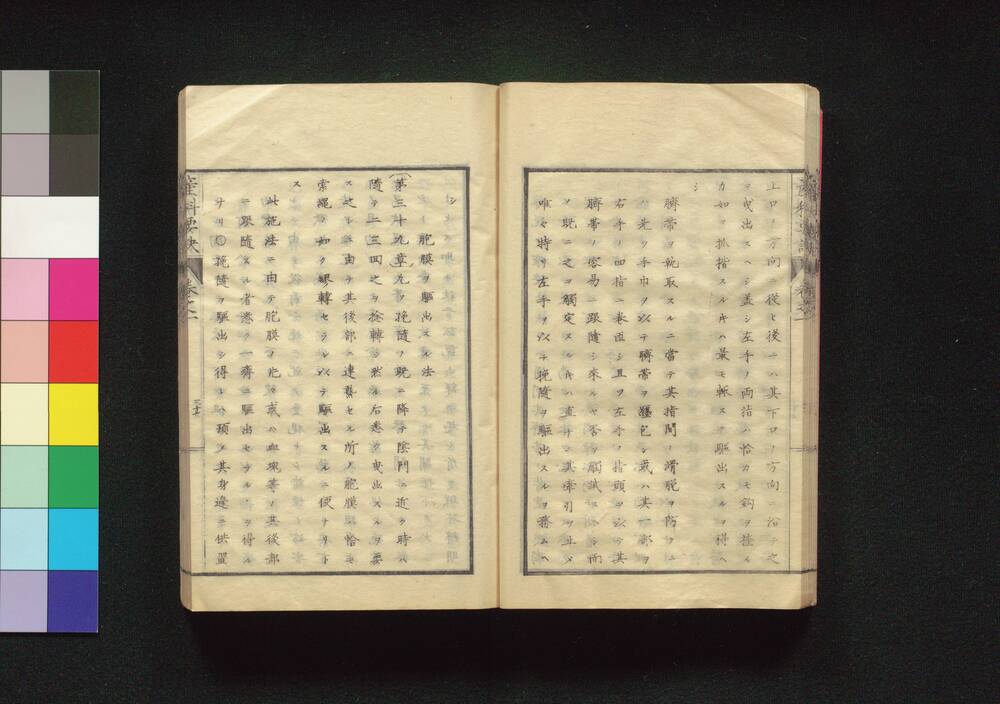 上口ノ方向ニ從ヒ後ニハ其下口ノ方向ニ沿テ之
ヲ曳出スヘシ蓋シ左手ノ両指ハ恰カモ鈎ヲ挂ル
カ如ク抓搯スルキハ最モ輙スク驅出スルヲ得ヘ
シ
臍帶ヲ執取スルニ當テ其指間ノ滑脱ヲ防クニ
ハ先ツ手巾ヲ以テ臍帶ヲ纏包シ或ハ其一部ヲ
右手ノ四指ニ卷匝シ且ツ左手ノ指頭ヲ以テ其
臍帶ノ容易ニ跟隨シ来ルヤ否ヲ觸試スヘシ而
ソ既ニ之ヲ觸定スルキハ直チニ其牽引ヲ止メ
唯々特リ左手ヲ以テ挽隨ヲ驅出スルヲ務ムヘ
シ
胞膜ヲ驅出スル法
第三十九章九ソ挽隨ノ既ニ降テ陰門ニ近ク時ハ
隨テ二三回之ヲ捻轉シ然ル后悉ク曳出スルヲ要
ス之ニ由テ其後部ニ連襲セル所ノ胞膜ハ恰モ
索繩ノ如ク繆轉セラレ以テ驅出スルニ便ナリト
ス
此施法ニ由テ胞膜ノ兆或ハ血塊等ノ其後部
ニ跟隨スル者悉ク一齊ニ驅出セラル丶ヲ得ル
ナリ〇挽隨ヲ驅出シ得レハ須ク其身邊ニ供置
産科要訣
卷之一